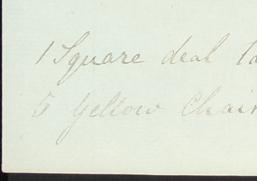 1 Square deal ta
5 Yellow Chair